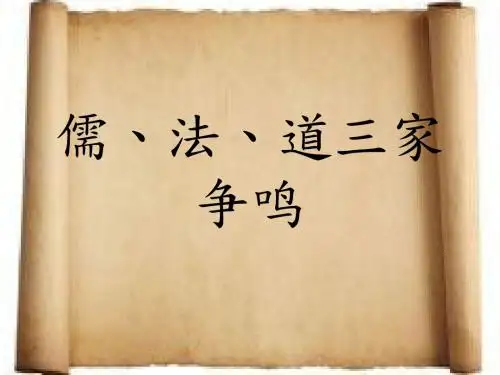 儒、法、道三家
争鸣